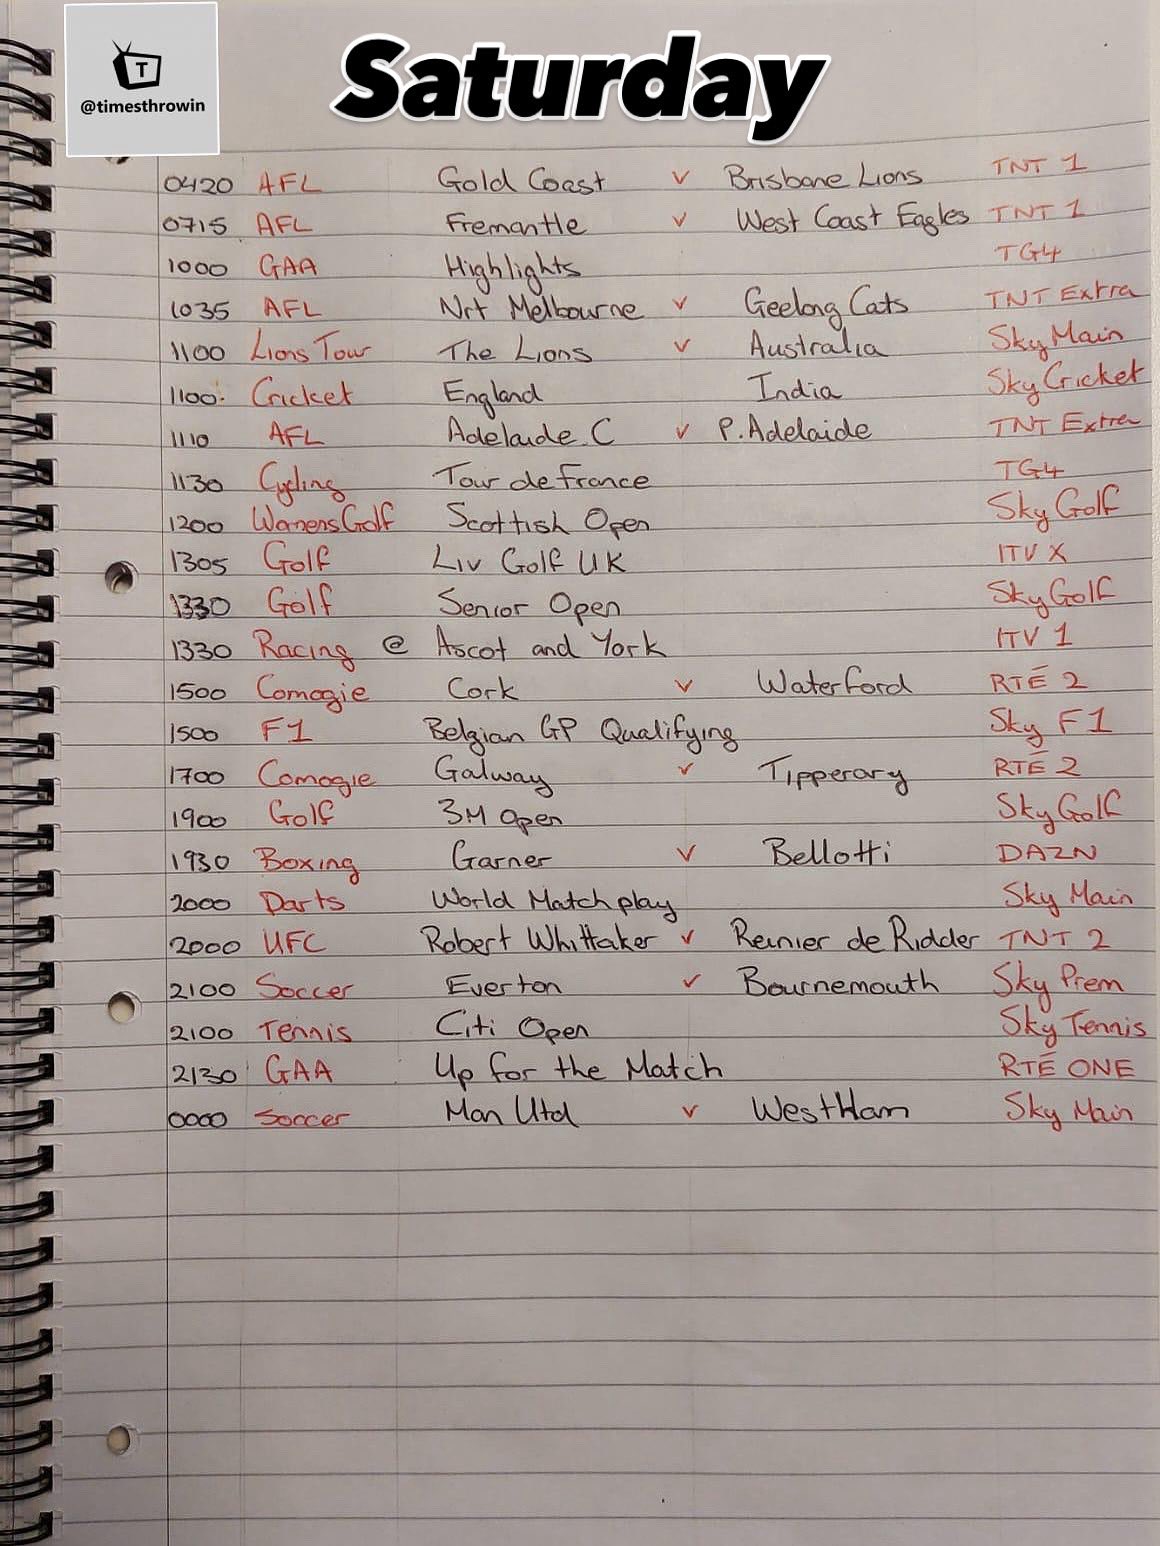 T
@timesthrowin
Saturday
0420 AFL Gold Coast v Brisbane Lions TNT 1
0715 AFL Fremantle v West Coast Eagles TNT 1
1000 GAA Highlights TG4
1035 AFL Nrt Melbourne v Geelong Cats TNT Extra
1100 Lions Tour The Lions v Australia Sky Main
1100. Cricket England India Sky Cricket
1110 AFL Adelaide C v P. Adelaide TNT Extra
1130 Cycling Tour de France TG4
1200 Womens Golf Scottish Open Sky Golf
1305 Golf Liv Golf UK ITV X
1330 Golf Senior Open Sky Golf
1330 Racing @ Ascot and York ITV 1
1500 Comogie Cork v Waterford RTÉ 2
1500 F1 Belgian GP Qualifying Sky F1
1700 Comogie Galway v Tipperary RTÉ 2
1900 Golf 3M Open Sky Golf
1930 Boxing Garner v Bellotti DAZN
2000 Darts World Matchplay Sky Main
2000 UFC Robert Whittaker v Reinier de Ridder TNT 2
2100 Soccer Everton v Bournemouth Sky Prem
2100 Tennis Citi Open Sky Tennis
2130 GAA Up for the Match RTÉ ONE
0000 Soccer Man Utd v West Ham Sky Main